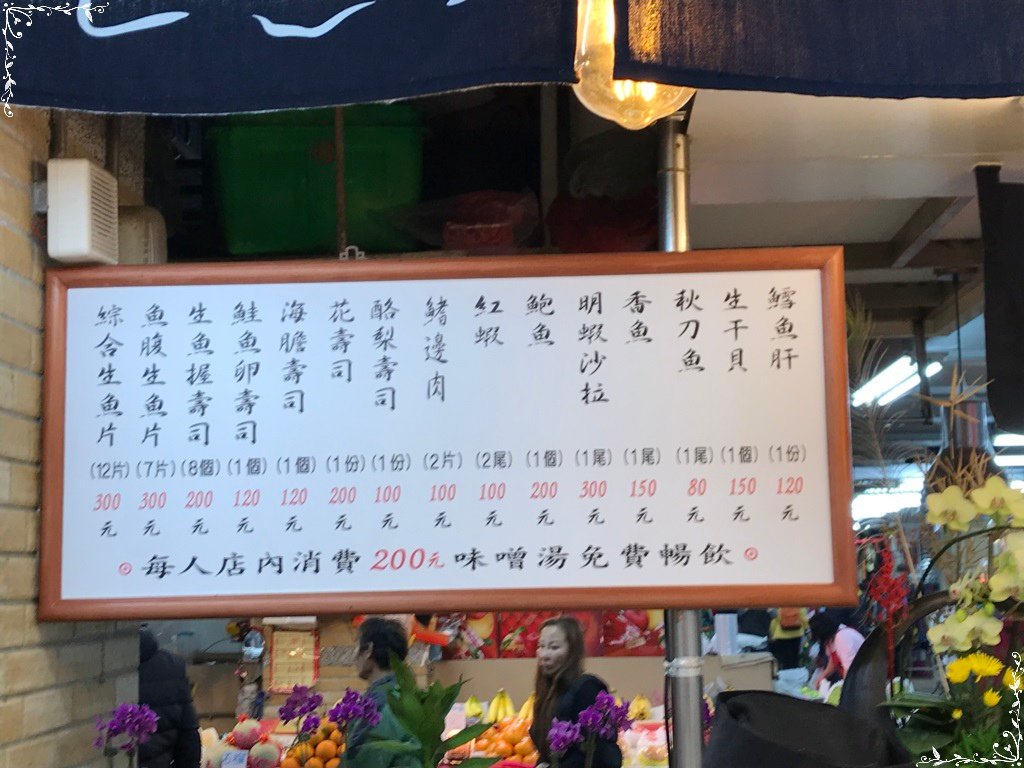 綜合生魚片(12片)300元
魚腹生魚片(7片)300元
生魚握壽司(8個)200元
鮭魚卵壽司(1個)120元
海膽壽司(1個)120元
花壽司(1份)200元
酪梨壽司(1份)100元
鰭邊肉(2片)100元
紅蝦(2尾)100元
鮑魚(1個)200元
明蝦沙拉(1尾)300元
香魚(1尾)150元
秋刀魚(1尾)80元
生干貝(1個)150元
鱈魚肝(1份)120元
每人店內消費200元味噌湯免費暢飲